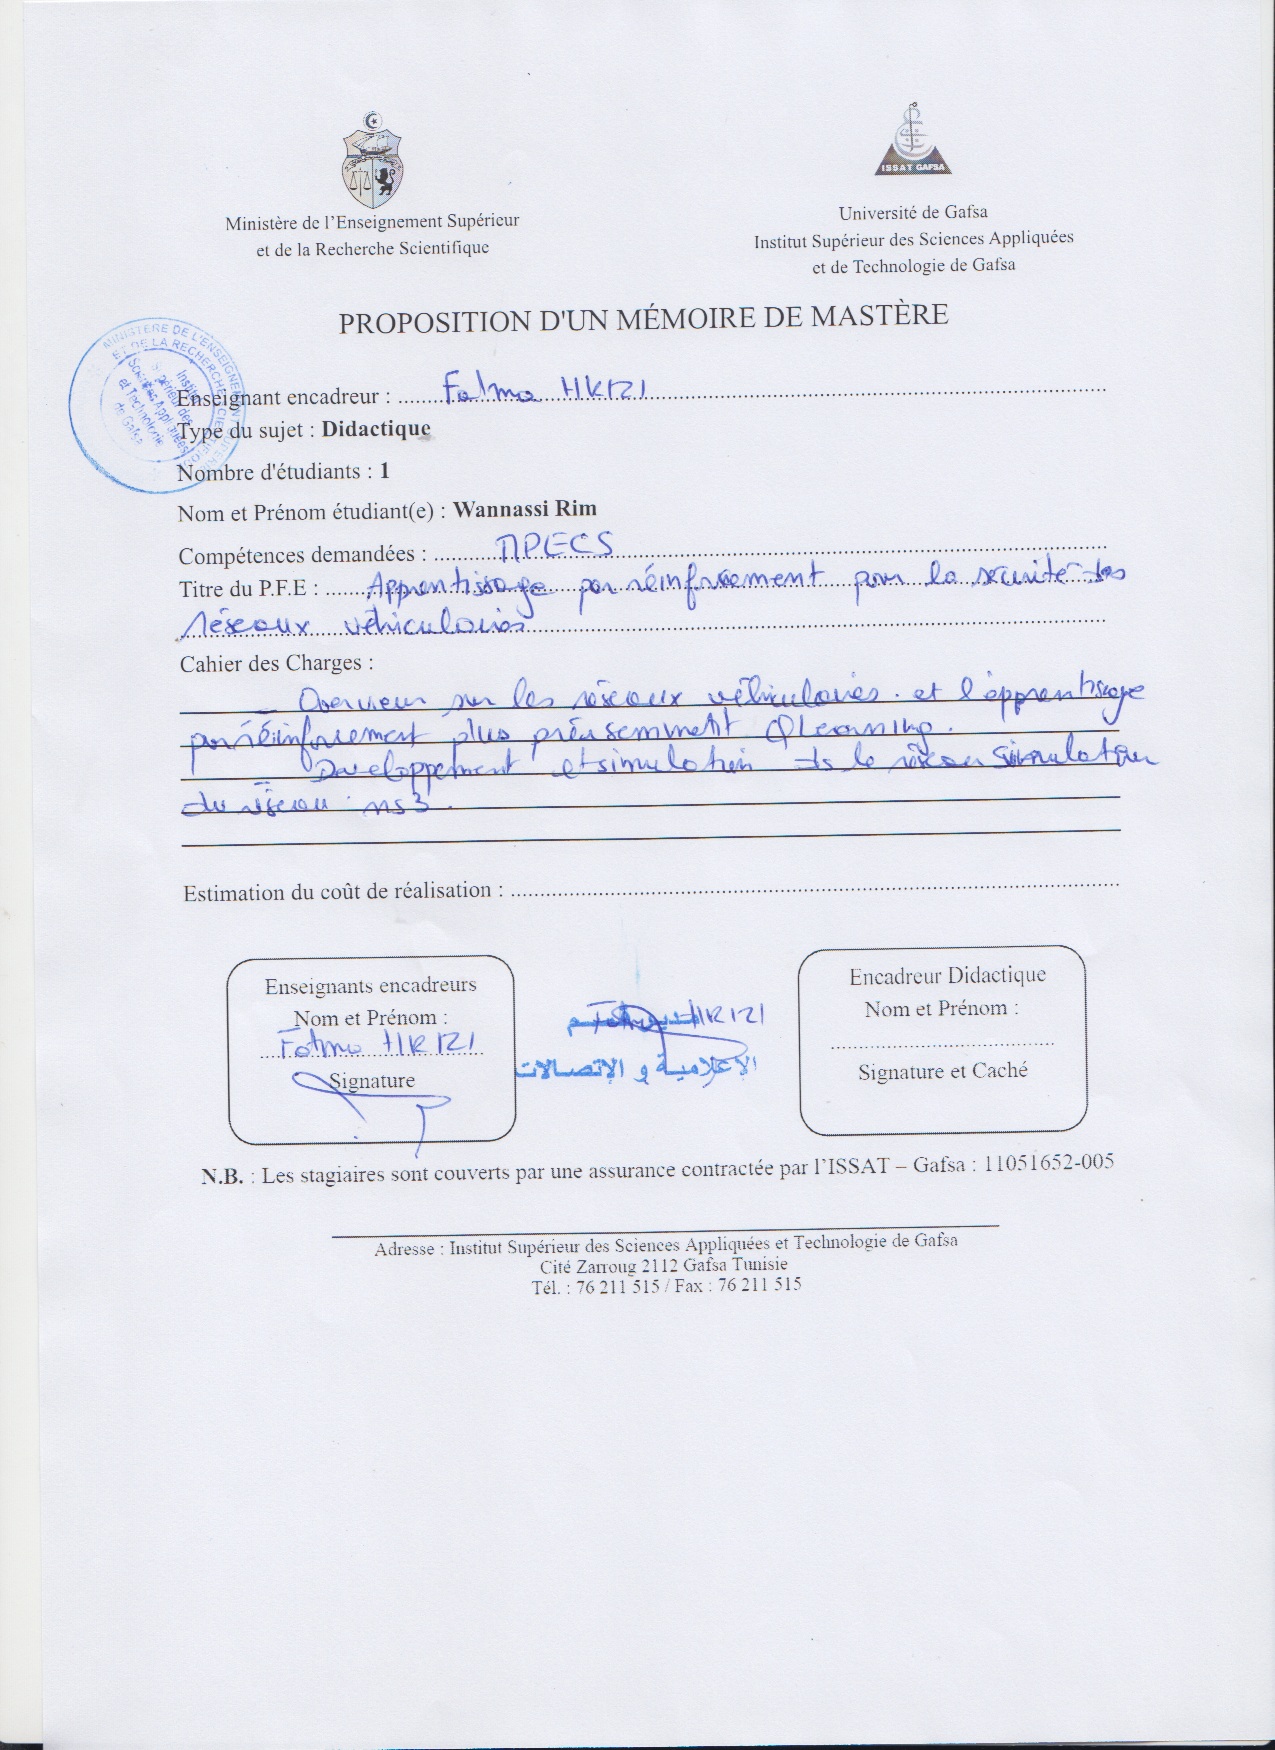 ISSAT GAFSA
Ministère de l'Enseignement Supérieur
et de la Recherche Scientifique
Université de Gafsa
Institut Supérieur des Sciences Appliquées
et de Technologie de Gafsa
PROPOSITION D'UN MÉMOIRE DE MASTÈRE
MINISTÈRE DE L'ENSEIGNEMENT SUPÉRIEUR
ET DE LA RECHERCHE SCIENTIFIQUE
Institut
Supérieur des
Sciences Appliquées
et Technologie
de Gafsa
Enseignant encadreur : Fatma HKIZI
Type du sujet : Didactique
Nombre d'étudiants : 1
Nom et Prénom étudiant(e) : Wannassi Rim
Compétences demandées : MPECS
Titre du P.F.E : Apprentissage par réinforcement pour la sécurité des
réseaux véhiculaires
Cahier des Charges :
_ Overview sur les réseaux véhiculaires. et l'apprentissage
par réinforcement plus précisemment QLearning.
_ Developpement et simulation ds le réseau simulateur
du réseau : ns3.
Estimation du coût de réalisation :
Enseignants encadreurs
Nom et Prénom :
Fatma HKIZI
Signature
Fatma HKIZI
الإعلامية و الإتصالات
Encadreur Didactique
Nom et Prénom :
Signature et Caché
N.B. : Les stagiaires sont couverts par une assurance contractée par l'ISSAT – Gafsa : 11051652-005
Adresse : Institut Supérieur des Sciences Appliquées et Technologie de Gafsa
Cité Zarroug 2112 Gafsa Tunisie
Tél. : 76 211 515 / Fax : 76 211 515